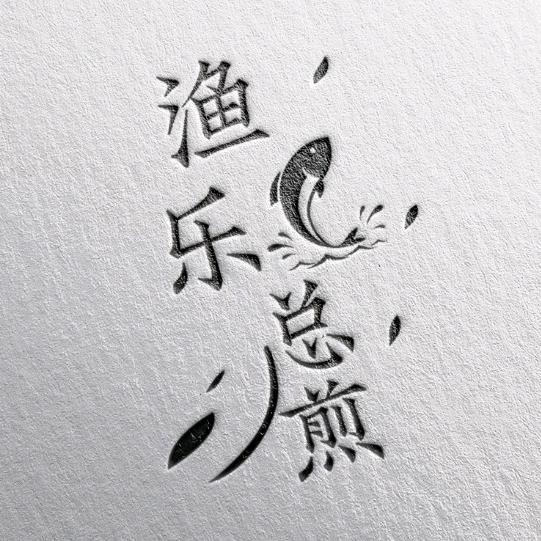 渔乐
总煎